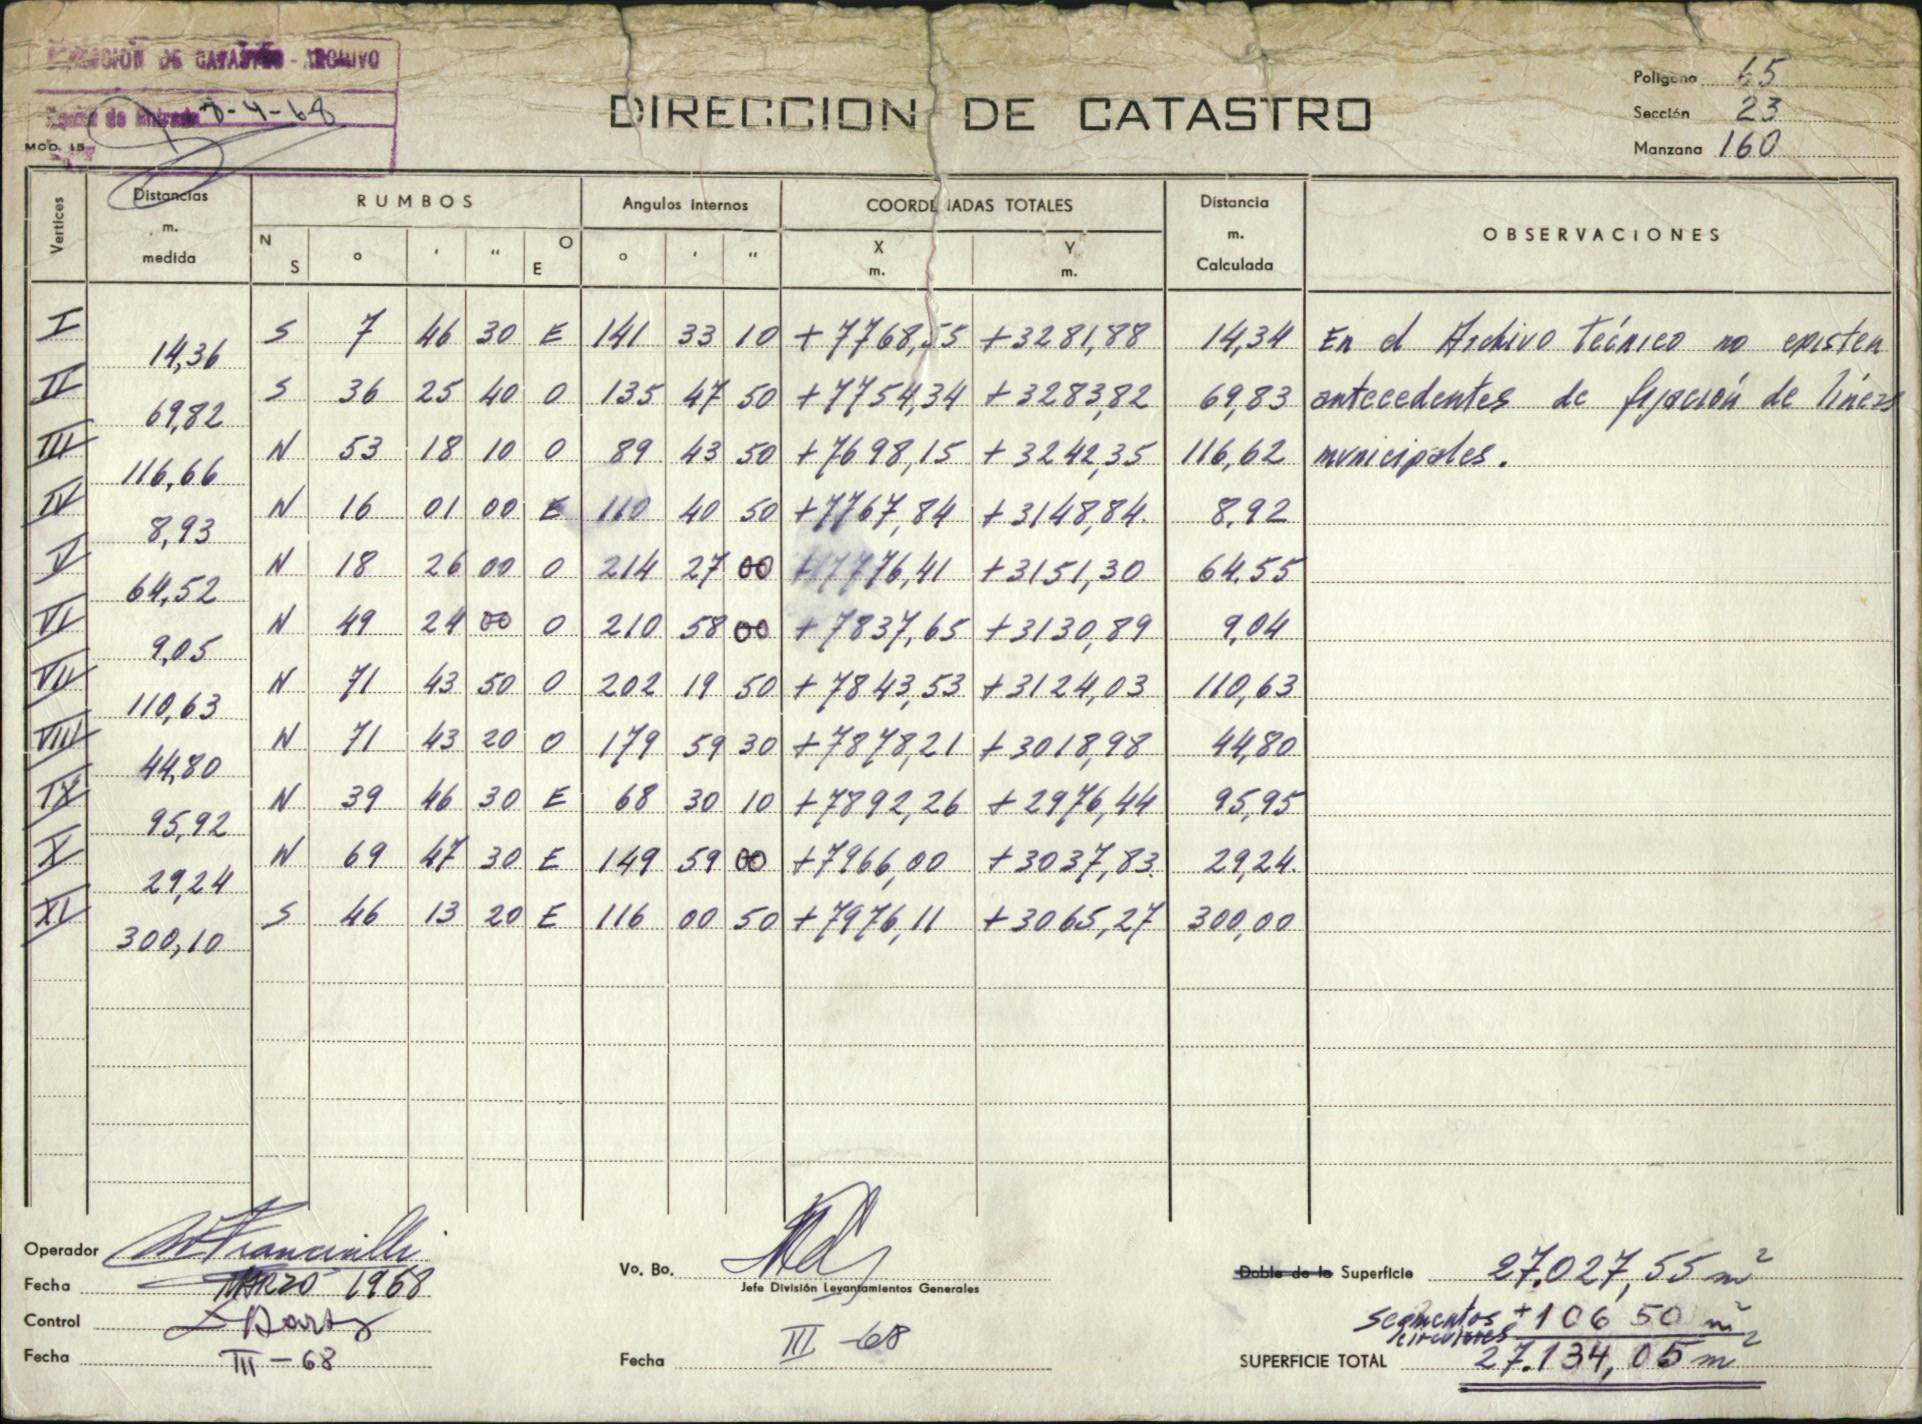 DIRECCION DE CATASTRO - ARCHIVO
8-4-68
MOD. 15
DIRECCION DE CATASTRO
Polígono 65
Sección 23
Manzana 160
Vertices Distancias m. medida RUMBOS Angulos internos COORDENADAS TOTALES Distancia m. Calculada OBSERVACIONES
N S ° ' " O E ° ' " X m. Y m.
I S 7 46 30 E 141 33 10 +7768,55 +3281,88 14,34 En el Archivo técnico no existen
14,36
II S 36 25 40 O 135 47 50 +7754,34 +3283,82 69,83 antecedentes de fijación de líneas
69,82
III N 53 18 10 O 89 43 50 +7698,15 +3242,35 116,62 municipales.
116,66
IV N 16 01 00 E 110 40 50 +7767,84 +3148,84. 8,92
8,93
V N 18 26 00 O 214 27 00 +7776,41 +3151,30 64.55
64,52
VI N 49 24 00 O 210 58 00 +7837,65 +3130,89 9,04
9,05
VII N 71 43 50 O 202 19 50 +7843,53 +3124,03 110,63
110,63
VIII N 71 43 20 O 179 59 30 +7878,21 +3018,98 44,80
44,80
IX N 39 46 30 E 68 30 10 +7892,26 +2976,44 95,95
95,92
X N 69 47 30 E 149 59 00 +7966,00 +3037,83. 29,24.
29,24
XI S 46 13 20 E 116 00 50 +7976,11 +3065,27 300,00
300,10
Operador
Fecha MARZO 1968
Control
Fecha III-68
Vo. Bo.
Jefe División Levantamientos Generales
Fecha III-68
Doble de la Superficie 27.027,55 m²
segmentos circulares +106 50 m²
SUPERFICIE TOTAL 27.134,05 m²